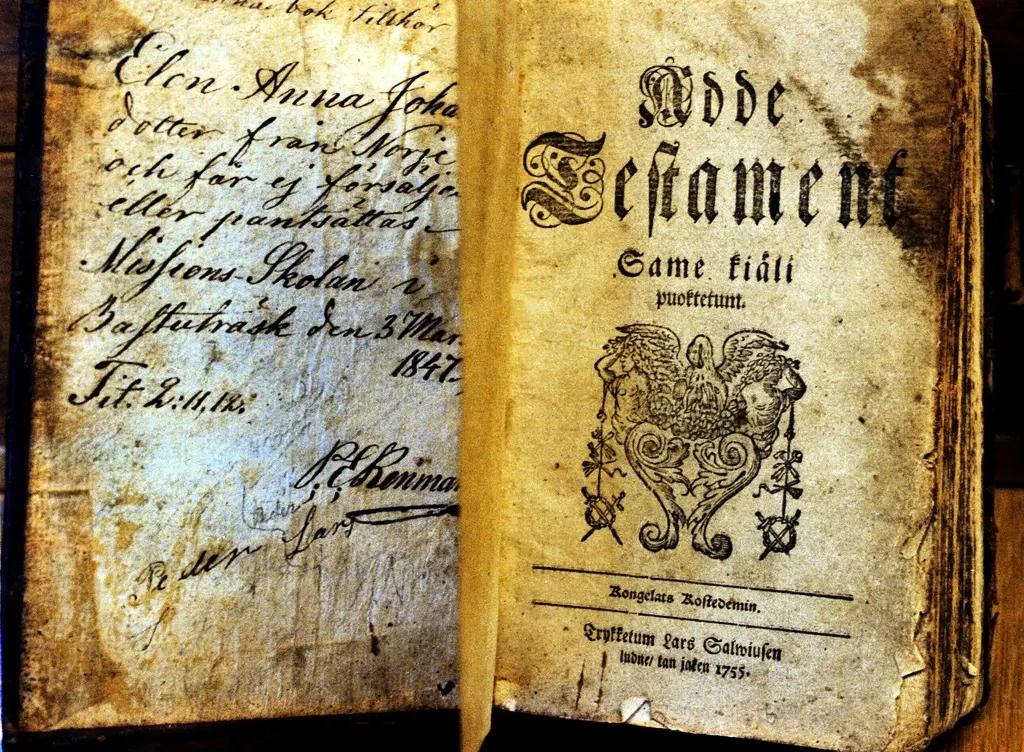 bok tillhör
Elen Anna Joha
dotter från Norje
och får ej försäljas
eller pantsättas
Missions-Skolan i
Bastuträsk den 3 Mar
1847.
Tit. 2:11,12.
Peder Lars
Ådde
Testament
Same kiäli
puoktetum.
Kongelats Kostedemin.
Trykketum Lars Salwiusen
ludne/ tan jaken 1755.